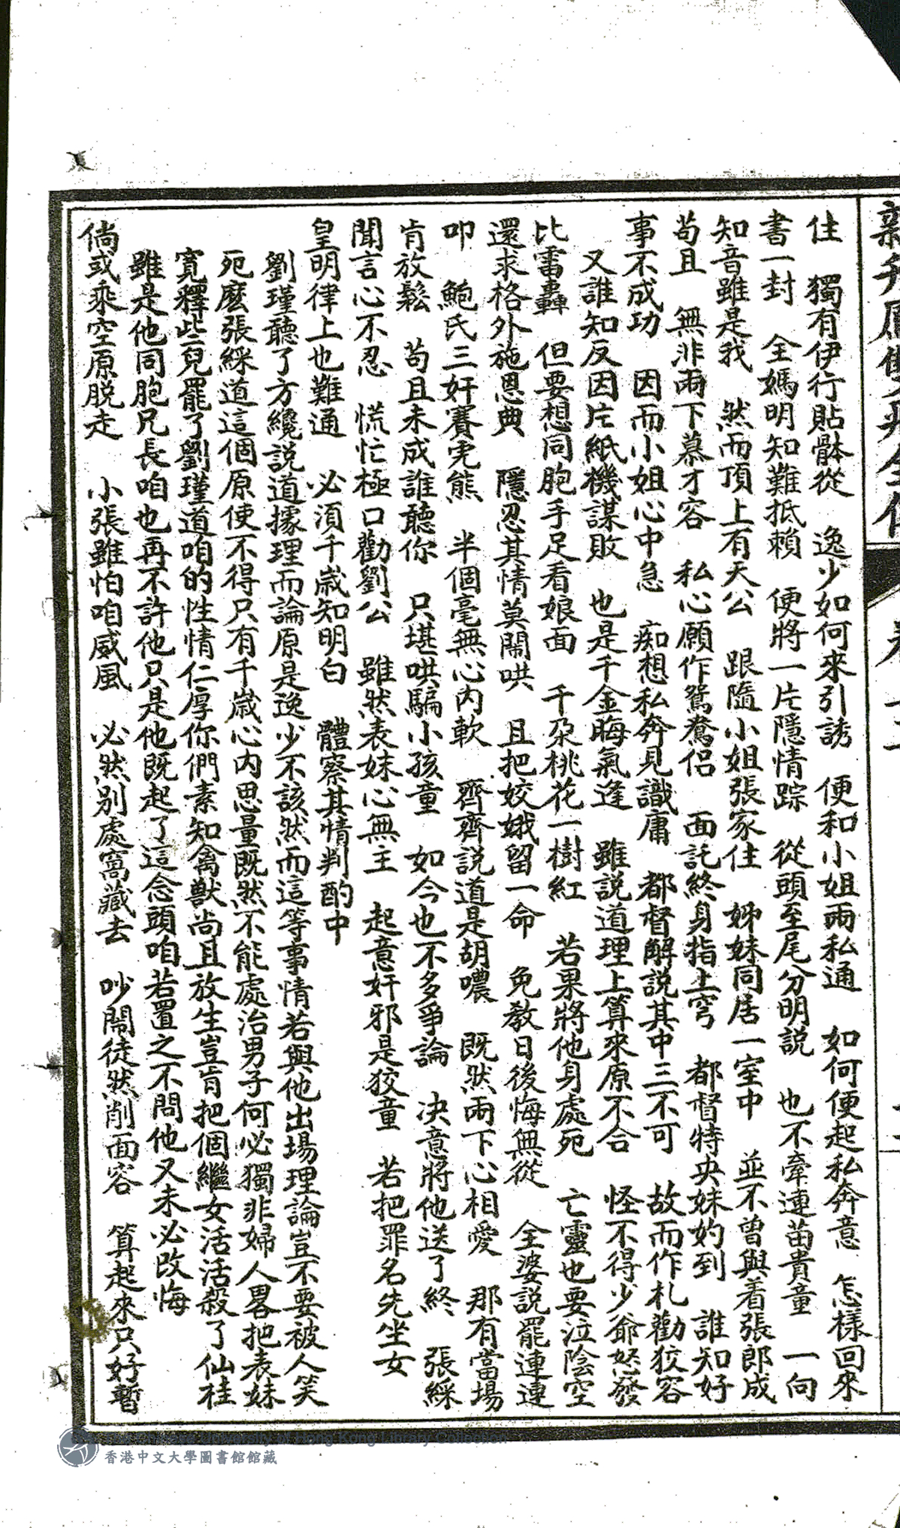 住　獨有伊行貼體從　逸少如何來引誘　便和小姐兩私通　如何便起私奔意　怎樣回來
書一封　全媽明知難抵賴　便將一片隱情踪　從頭至尾分明說　也不牽連苗貴童　一向
知音雖是我　然而頂上有天公　跟隨小姐張家住　姊妹同居一室中　並不曾與着張郎成
苟且　無非兩下慕才容　私心願作鴛鴦侶　面託終身指上穹　都督特央妹妁到　誰知好
事不成功　因而小姐心中急　痴想私奔見識庸　都督解說其中三不可　故而作札勸狡容
又誰知反因片紙機謀敗　也是千金晦氣逢　雖說道理上算來原不合　怪不得少爺怒發
比雷轟　但要想同胞手足看娘面　千朵桃花一樹紅　若果將他身處死　亡靈也要泣陰空
還求格外施恩典　隱忍其情莫鬧哄　且把姣娥留一命　免教日後悔無從　全婆說罷連連
叩　鮑氏三奸賽宪熊　半個毫無心內軟　齊齊說道是胡噥　既然兩下心相愛　那有當場
肯放鬆　苟且未成誰聽你　只堪哄騙小孩童　如今也不多爭論　決意將他送了終　張綵
聞言心不忍　慌忙極口勸劉公　雖然表妹心無主　起意奸邪是狡童　若把罪名先坐女
皇明律上也難通　必須千歲知明白　體察其情判酌中
劉瑾聽了方纔說道據理而論原是逸少不該然而這等事情若與他出場理論豈不要被人笑
死麽張綵道這個原使不得只有千歲心內思量既然不能處治男子何必獨非婦人畧把表妹
寬釋些兒罷了劉瑾道咱的性情仁厚你們素知禽獸尚且放生豈肯把個繼女活活殺了仙桂
雖是他同胞兄長咱也再不許他只是他既起了這念頭咱若置之不問他又未必改悔
倘或乘空原脫走　小張雖怕咱威風　必然別處窩藏去　吵鬧徒然削面容　算起來只好暫
香港中文大學圖書館館藏